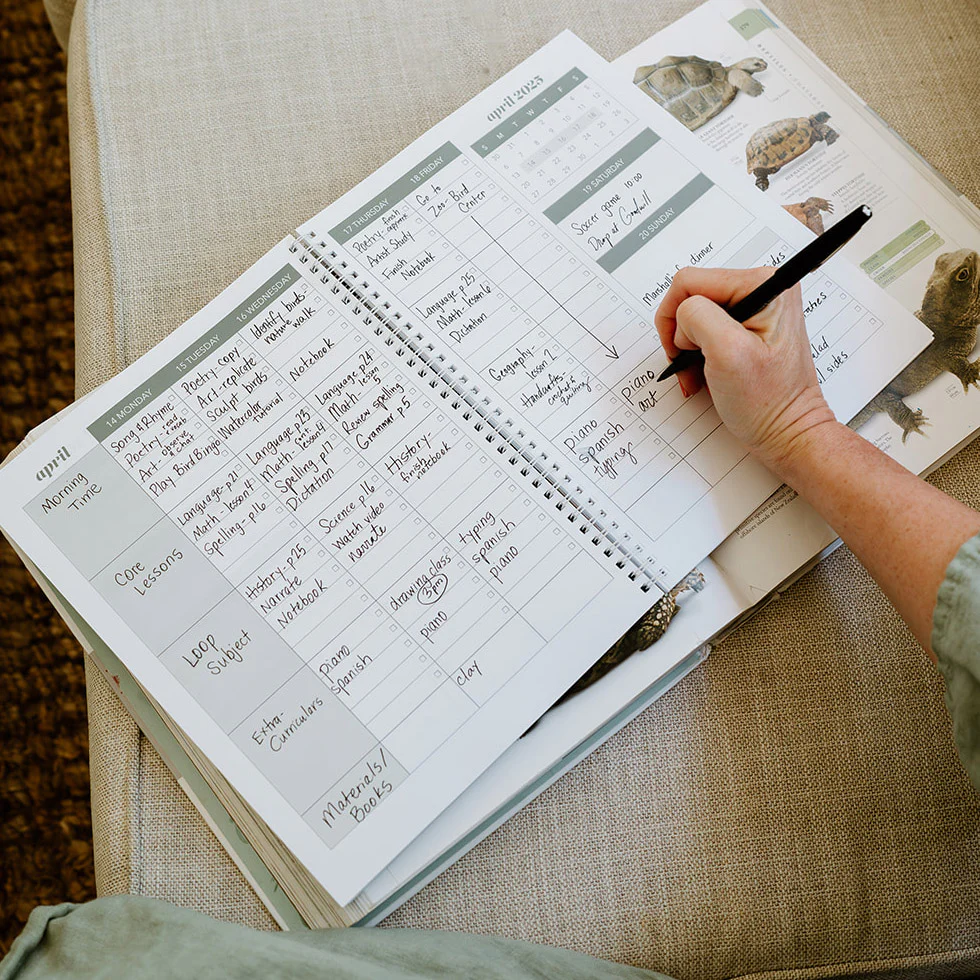 april
14 MONDAY
15 TUESDAY
16 WEDNESDAY
Morning
Time
Song & Rhyme
Poetry - read
& recite
Art - observe
& color
Play Bird Bingo
Poetry - copy
Art - replicate
Sculpt birds
Watercolor
tutorial
Identify birds
nature walk
Notebook
Core
Lessons
Language - p.21
Math - lesson 4
Spelling - p.16
Language p.23
Math - cont.
lesson 4
Spelling p.17
Dictation
Language p.24
Math - lesson
5
Review spelling
Grammar p.5
LOOP
Subject
History - p.25
Narrate
Notebook
Science p.16
Watch video
narrate
History -
finish
notebook
Extra-
Curriculars
Piano
spanish
drawing class
3pm
piano
typing
spanish
piano
Materials/
Books
clay
april 2025
17 THURSDAY
18 FRIDAY
S M T W T F S
19 SATURDAY
20 SUNDAY
Poetry - finish
Artist Study
Finish
Notebook
Go to
Zoo - Bird
Center
Language - p.25
Math - lesson 6
Dictation
Geography -
Lesson 2
Handcrafts
crochet &
quilting
piano
spanish
typing
piano
art
Soccer game 10:00
Drop at Goodwill
Marshall's for dinner
sides
sides